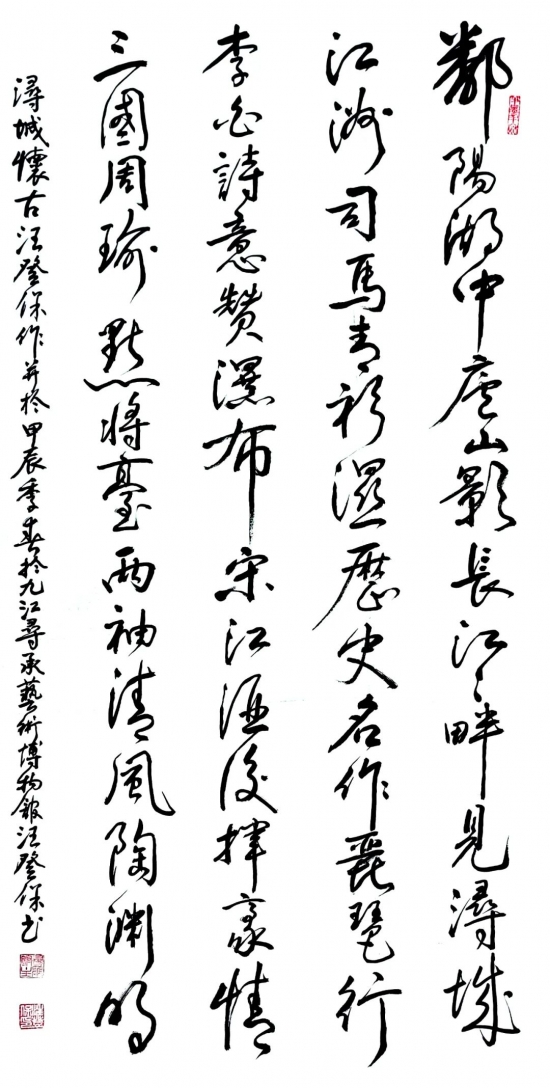 鄱陽湖中廬山影長江江畔見潯城
江洲司馬青衫濕歷史名作琵琶行
李白詩意贊瀑布宋江酒後揮豪情
三國周瑜點將臺兩袖清風陶淵明
潯城懷古汪登保作并於甲辰季春於九江尋承藝術博物館汪登保书